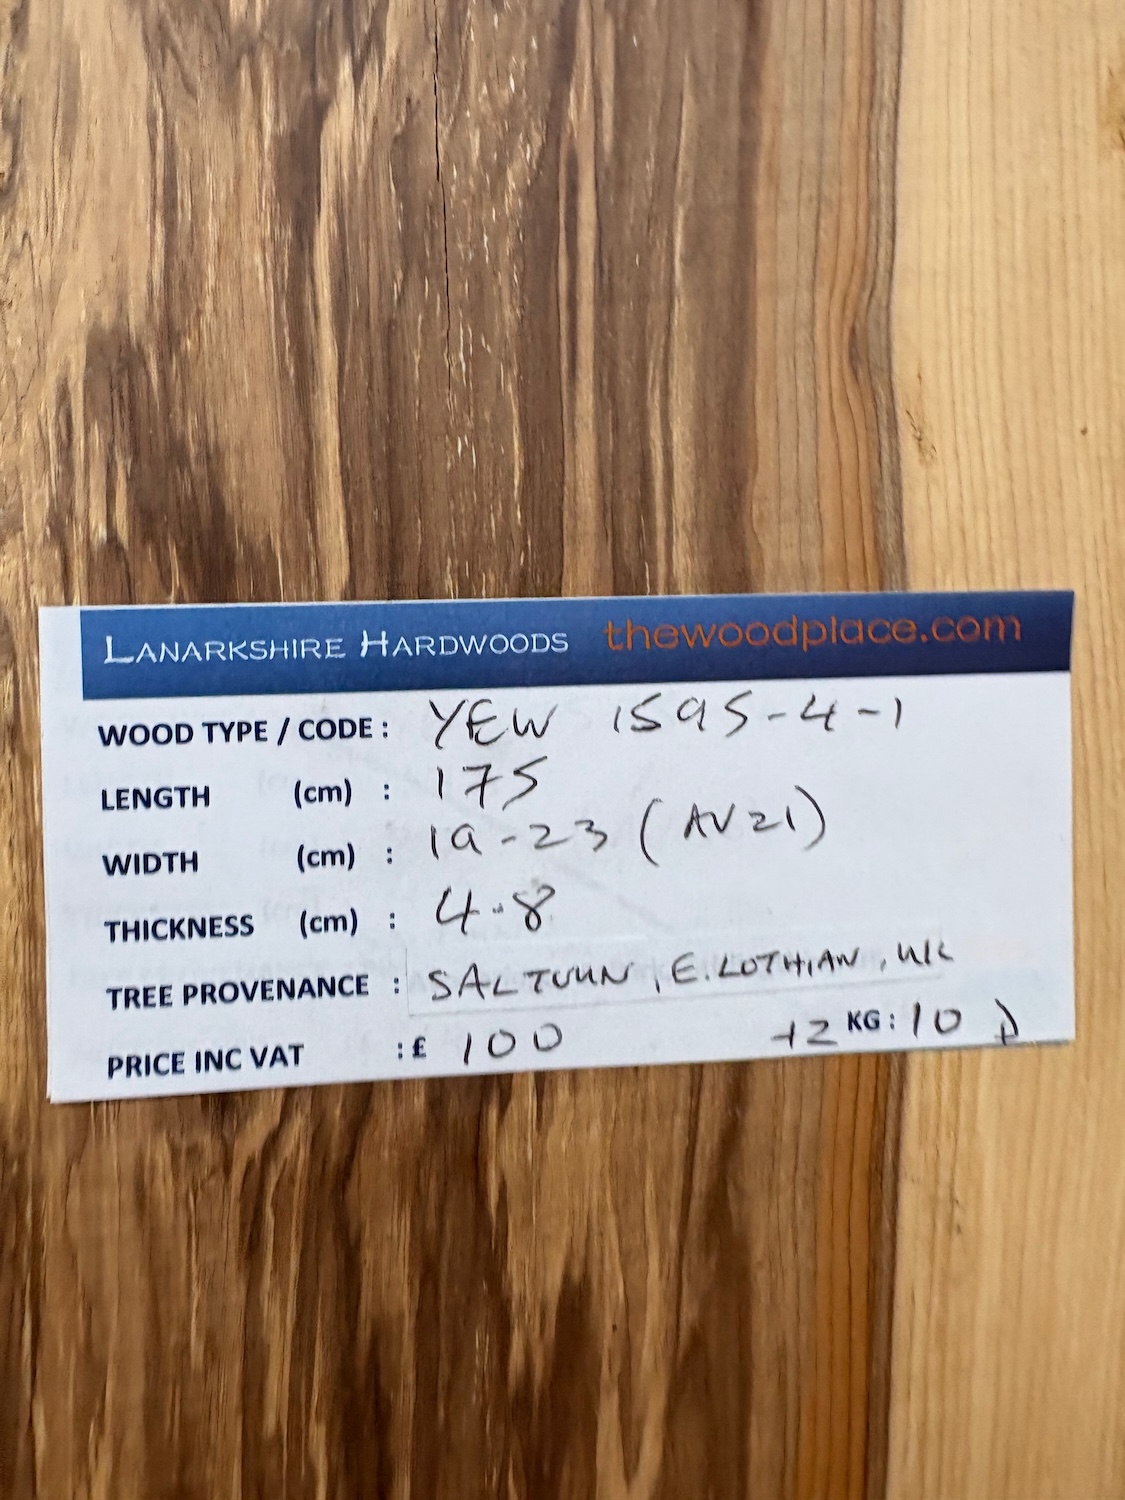 LANARKSHIRE HARDWOODS thewoodplace.com
WOOD TYPE / CODE : YEW 1595-4-1
LENGTH (cm) : 175
WIDTH (cm) : 19-23 (AV21)
THICKNESS (cm) : 4.8
TREE PROVENANCE : SALTOUN, E. LOTHIAN, UK
PRICE INC VAT : £ 100 KG : 10